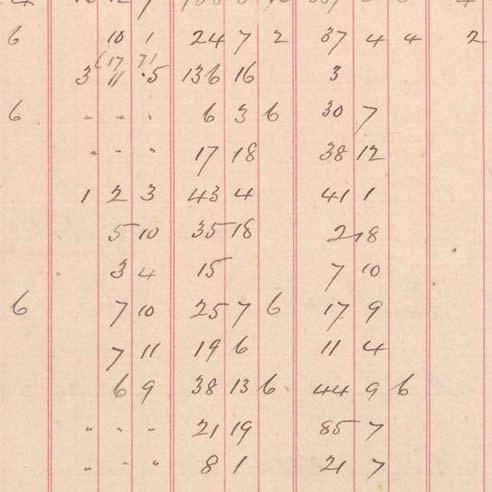 6 10 1 24 7 2 37 4 4 2
(17 71
3 11 5 136 16 3
6 " " " 6 3 6 30 7
" " " 17 18 38 12
1 2 3 43 4 41 1
5 10 35 18 2 18
3 4 15 7 10
6 7 10 25 7 6 17 9
7 11 19 6 11 4
6 9 38 13 6 44 9 6
" " " 21 19 85 7
" " " 8 1 21 7